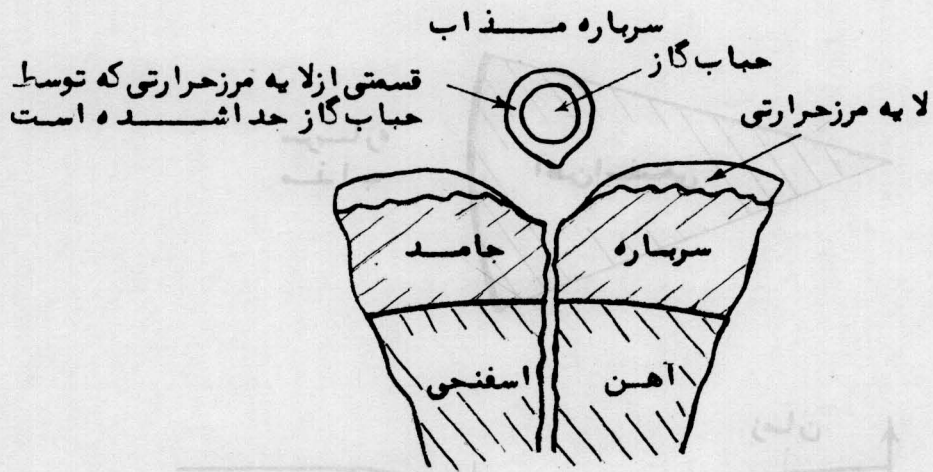 سرباره مـــذاب
حباب گاز
قسمتی از لایه مرز حرارتی که توسط
حباب گاز حدا شـــده است
لایه مرز حرارتی
سرباره
جامـــد
آهـــن
اسفنحی